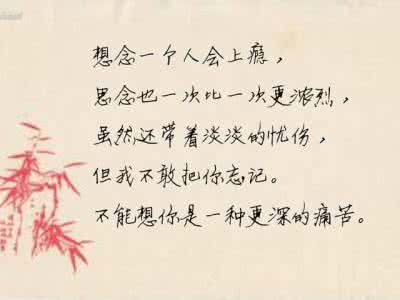 想念一个人会上瘾，
思念也一次比一次更浓烈，
虽然还带着淡淡的忧伤，
但我不敢把你忘记。
不能想你是一种更深的痛苦。